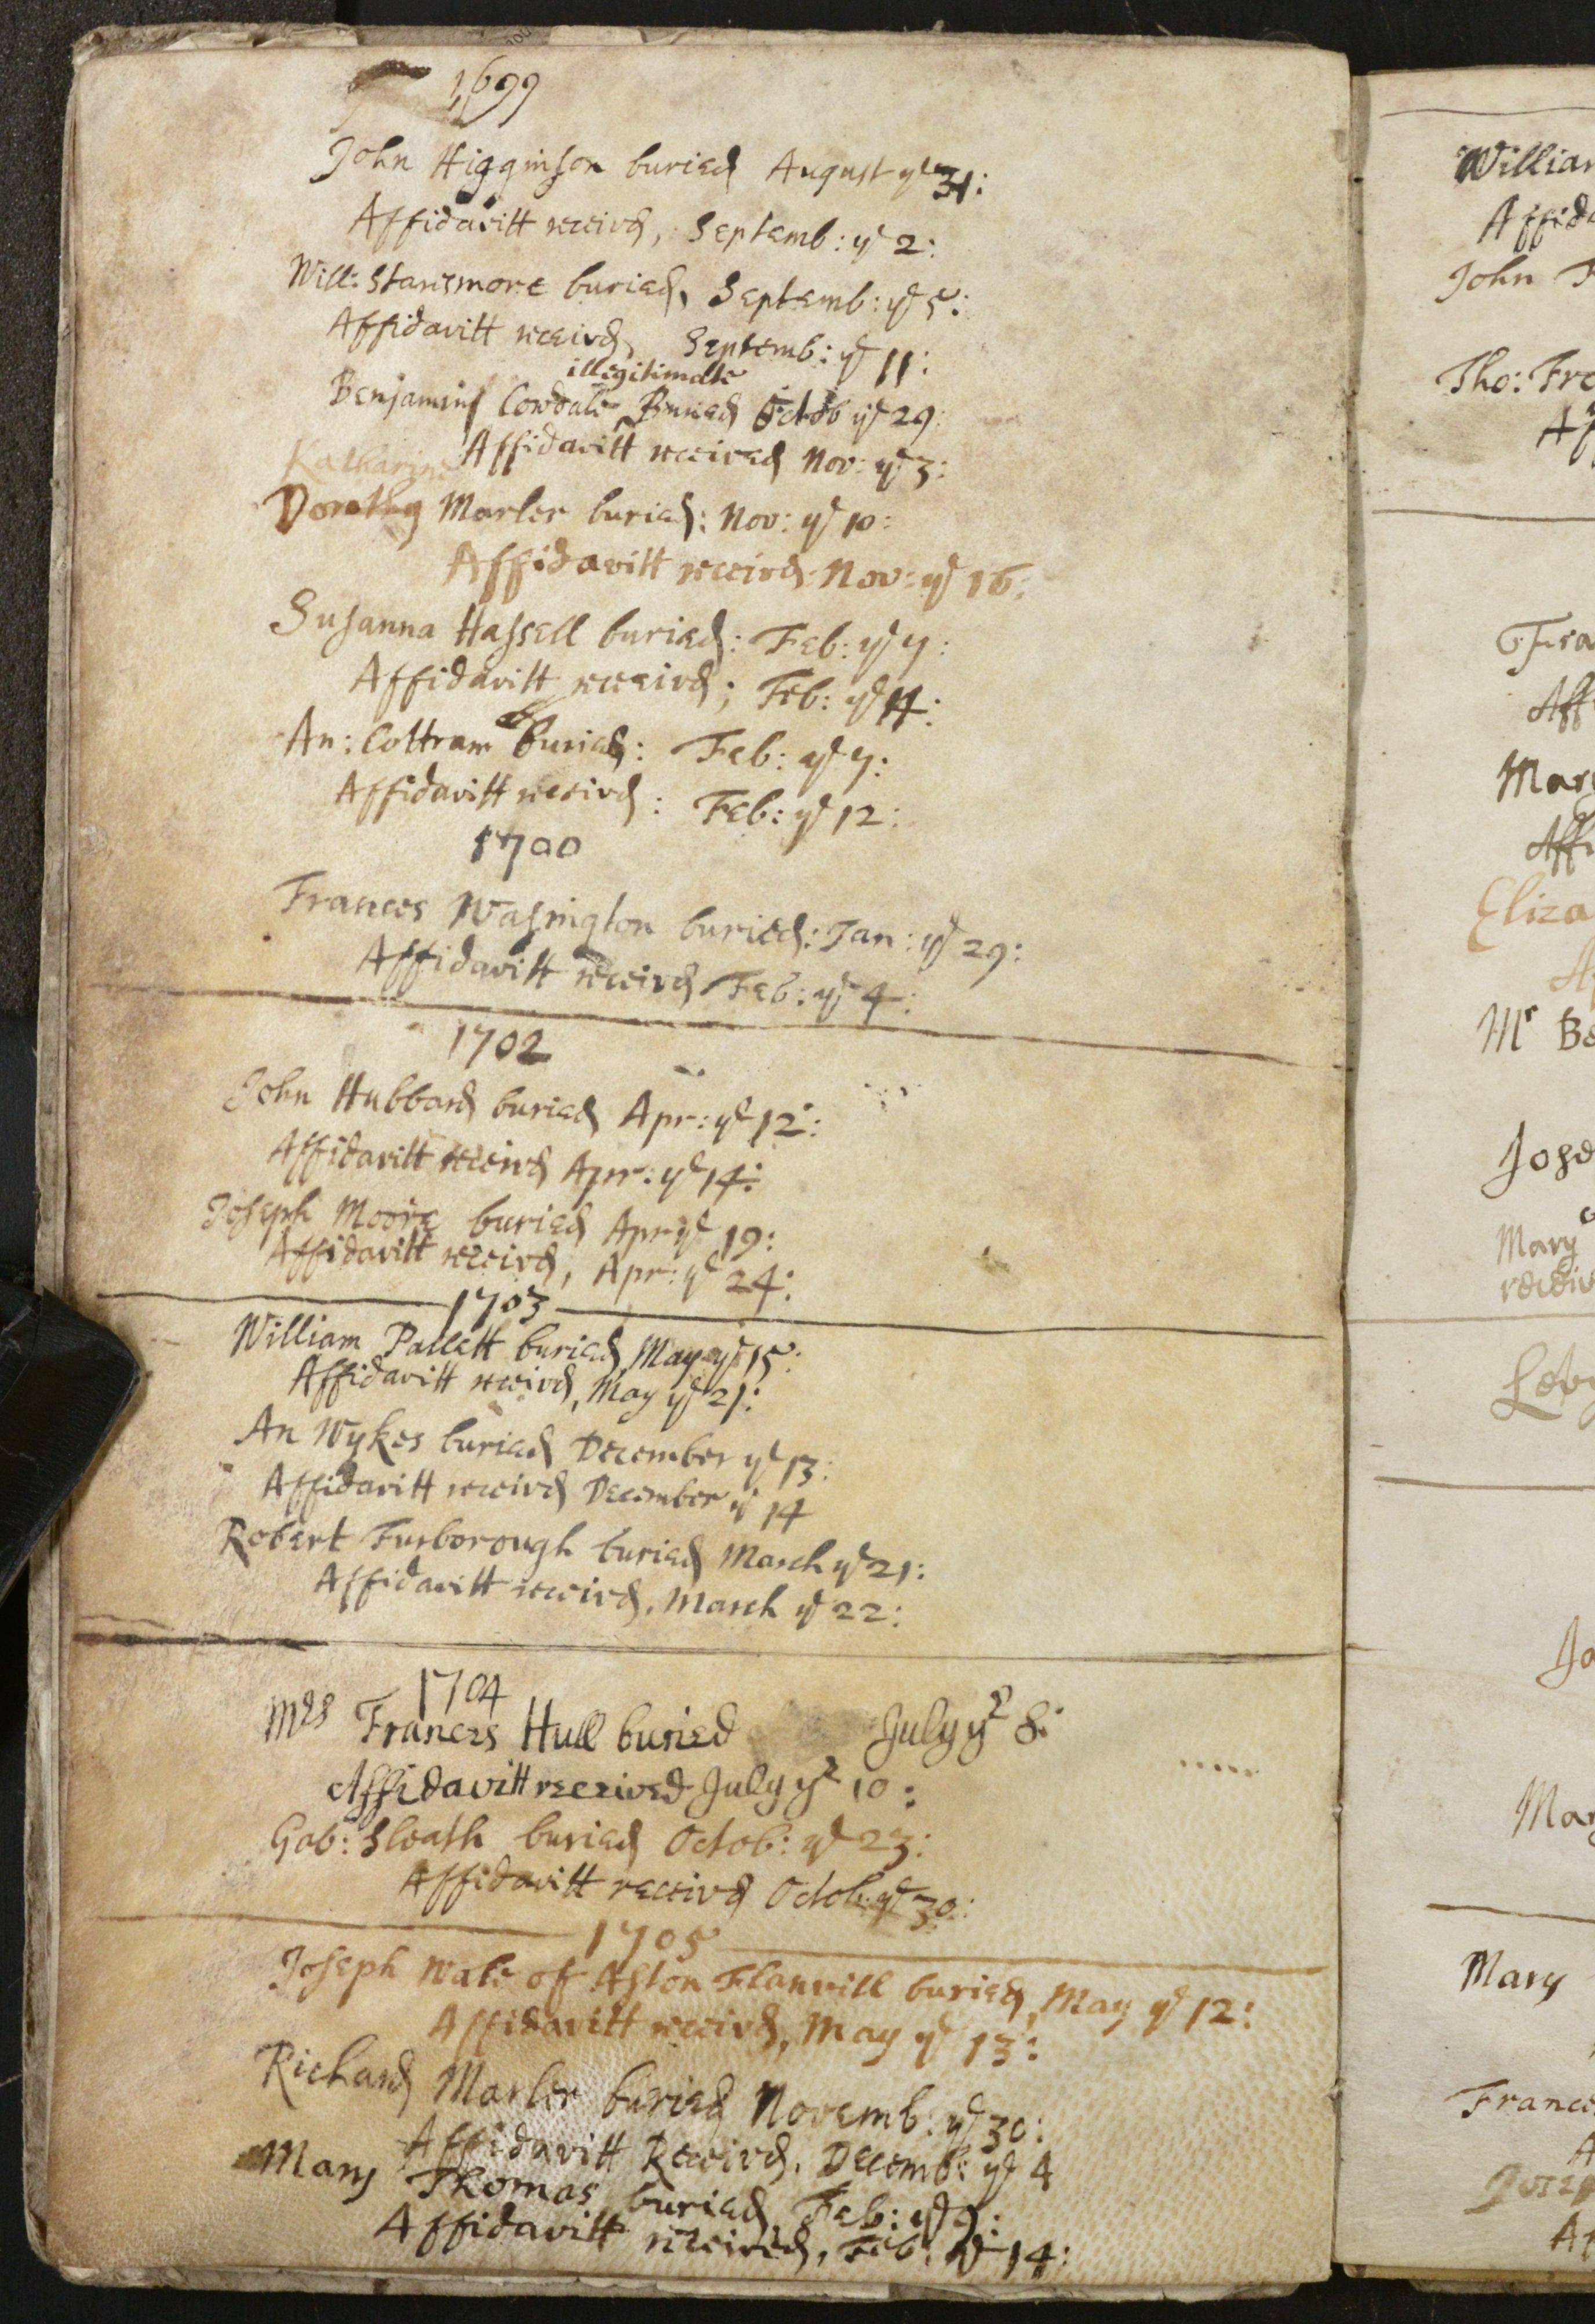 1699
John Higginson buried August ye 31:
Affidavitt receivd, Septemb: ye 2:
Will: Stanismore buried, Septemb: ye 5:
Affidavitt receivd, Septemb: ye 11:
illegitimate
Benjamin Cowdale Buried Octob ye 29:
Affidavitt received Nov: ye 3:
Katharine
Dorothy Marler buried: Nov: ye 10:
Affidavitt receivd: Nov: ye 16:
Susanna Hassell buried: Feb: ye 7:
Affidavitt receivd; Feb: ye 11:
An: Cottram buried: Feb: ye 7:
Affidavitt receivd: Feb: ye 12:
1700
Frances Wasington buried: Jan: ye 29:
Affidavitt receivd Feb: ye 4:
1702
John Hubbard buried Apr: ye 12:
Affidavitt receivd Apr: ye 14:
Joseph Moore buried Apr ye 19:
Affidavitt receivd, Apr: ye 24:
1703
William Pallett buried, May ye 15:
Affidavitt receivd, May ye 21:
An Wykes buried December ye 13:
Affidavitt receivd December ye 14
Robert Furborough buried March ye 21:
Affidavitt receivd, March ye 22:
1704
Mrs Frances Hull buried July ye 8:
Affidavitt received July ye 10:
Gab: Sleath buried Octob: ye 23:
Affidavitt receivd Octob: ye 30:
1705
Joseph Wale of Aston Flanvill buried, May ye 12:
Affidavitt receivd, May ye 13:
Richard Marler buried Novemb: ye 30:
Affidavitt Receivd, Decemb: ye 4
Mary Thomas buried, Feb: ye 9:
Affidavitt received, Feb: ye 14:
William
Affida
John
Tho: Fre
Af
Fra
Aff
Mary
Affi
Eliza
A
Mr Be
Jose
Mary
receiv
Ja
Mar
Mary
France
A
Af